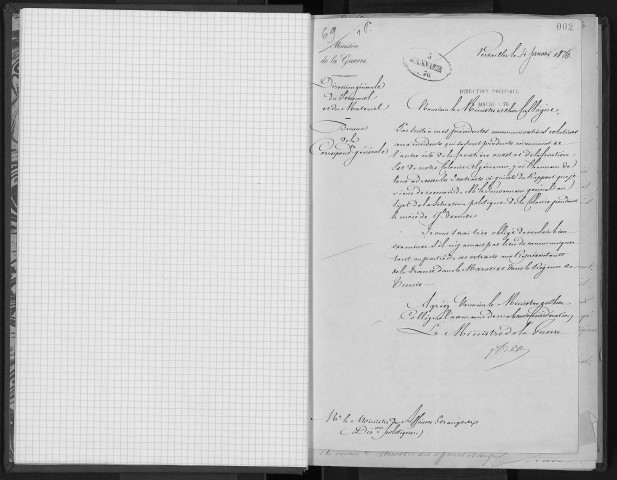 69
002
Ministère
de la Guerre
Versailles le 4 Janvier 1876
Direction générale
du Personnel
et du Matériel
DIRECTION POLITIQUE
Bureau
de la
Correspond. générale
Monsieur le Ministre et cher Collègue,
Par suite à mes précédentes communications relatives
aux incidents qui se sont produits récemment de
l'autre côté de la frontière ouest et de la frontière
Est de notre Colonie Algérienne, j'ai l'honneur de
vous adresser les extraits ci-joints du Rapport que je
viens de recevoir de M. le Gouverneur général au
sujet de la situation politique de la Colonie pendant
le mois de 9bre dernier.
Je vous serais très obligé de vouloir bien
examiner s'il n'y aurait pas lieu de communiquer
tout ou partie de ces extraits aux Représentants
de la France dans le Maroc et dans la Régence de
Tunis.
Agréez, Monsieur le Ministre et cher
Collègue, l'assurance de ma haute considération,
Le Ministre de la Guerre
Mr le Ministre des Affaires Etrangères
(Don politique)